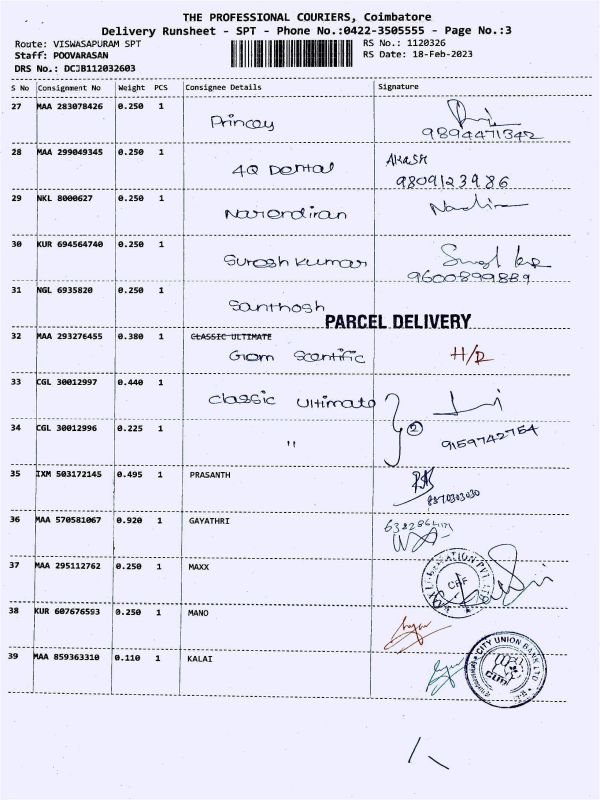 THE PROFESSIONAL COURIERS, Coimbatore
Delivery Runsheet - SPT - Phone No.:0422-3505555 - Page No.:3
Route: VISWASAPURAM SPT RS No.: 1120326
Staff: POOVARASAN RS Date: 18-Feb-2023
DRS No.: DCJB112032603
S No Consignment No Weight PCS Consignee Details Signature
27 MAA 283078426 0.250 1
Princey
9894471342
28 MAA 299049345 0.250 1
4Q Dental
Akash
9809123986
29 NKL 8000627 0.250 1
Narendiran
30 KUR 694564740 0.250 1
Suresh kumar
9600899889
31 NGL 6935820 0.250 1
Santhosh
PARCEL DELIVERY
32 MAA 293276455 0.380 1 CLASSIC ULTIMATE
Gram Scentific H/R
33 CGL 30012997 0.440 1
Classic Ultimate
34 CGL 30012996 0.225 1
" 2 9159742754
35 IXM 503172145 0.495 1 PRASANTH
8870303030
36 MAA 570581067 0.920 1 GAYATHRI
37 MAA 295112762 0.250 1 MAXX
38 KUR 607676593 0.250 1 MANO
39 MAA 859363310 0.110 1 KALAI
CITY UNION BANK LTD
CUB